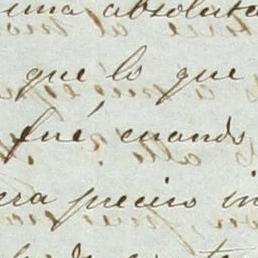 una absoluta
que lo que
fué, cuando
era preciso in